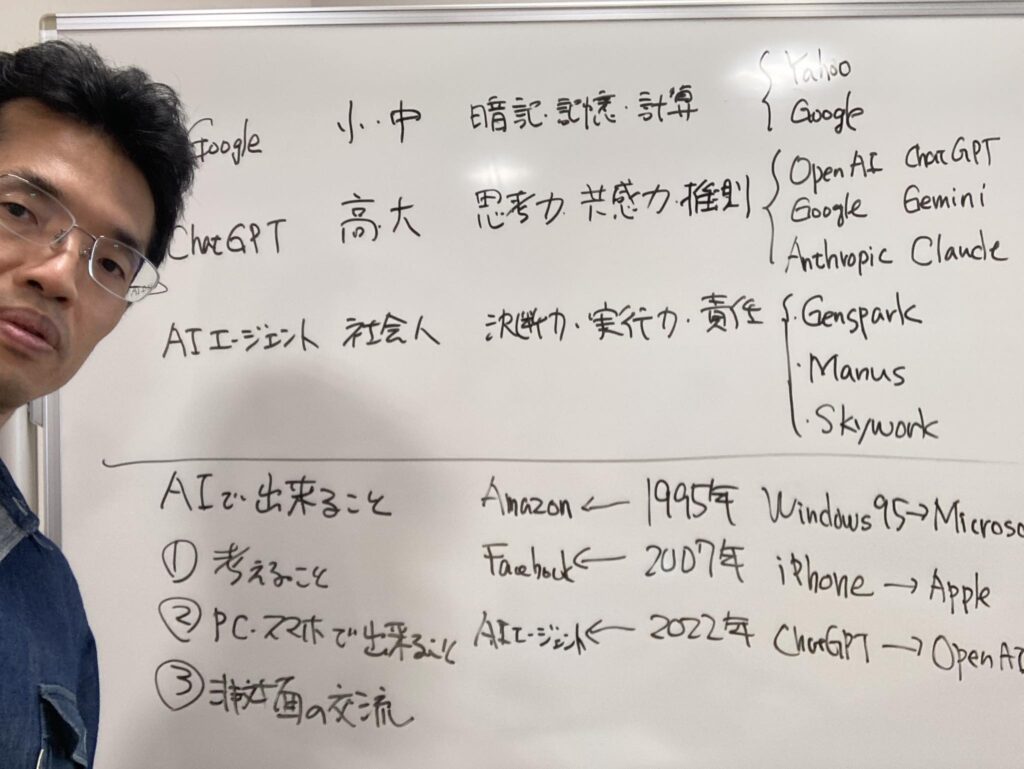 Google 小・中 暗記・記憶・計算 Yahoo
Google
ChatGPT 高・大 思考力・共感力・推測 OpenAI ChatGPT
Google Gemini
Anthropic Claude
AIエージェント 社会人 決断力・実行力・責任 ・Genspark
・Manus
・Skywork
AIで出来ること
① 考えること
② PC・スマホで出来ること
③ 非対面の交流
Amazon ← 1995年 Windows95→Microso
Facebook← 2007年 iPhone → Apple
AIエージェント← 2022年 ChatGPT → OpenAI